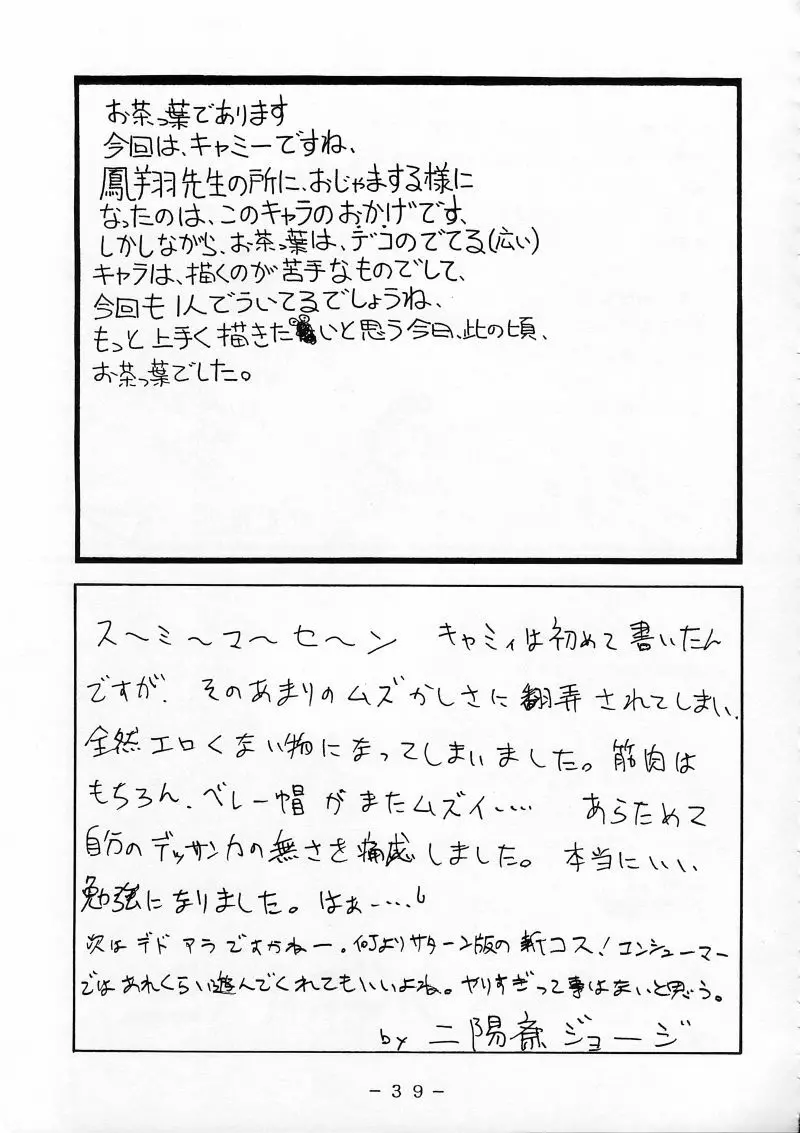 お茶っ葉であります
今回は、キャミーですね、
鳳翔羽先生の所に、おじゃまする様に
なったのは、このキャラのおかげです、
しかしながら、お茶っ葉は、デコのでてる(広い)
キャラは、描くのが苦手なものでして、
今回も1人でういてるでしょうね、
もっと上手く描きたいと思う今日、此の頃、
お茶っ葉でした。
ス〜ミ〜マ〜セ〜ン キャミィは初めて書いたん
ですが、そのあまりのムズかしさに翻弄されてしまい、
全然エロくない物になってしまいました。筋肉は
もちろん、ベレー帽がまたムズイ‥‥ あらためて
自分のデッサン力の無さを痛感しました。本当にいい
勉強になりました。はぁ‥‥
次はデドアラですかねー。何よりサターン版の新コス!コンシューマー
ではあれくらい遊んでくれてもいいよね。ヤリすぎって事はないと思う。
by 二陽斎ジョージ
-39-